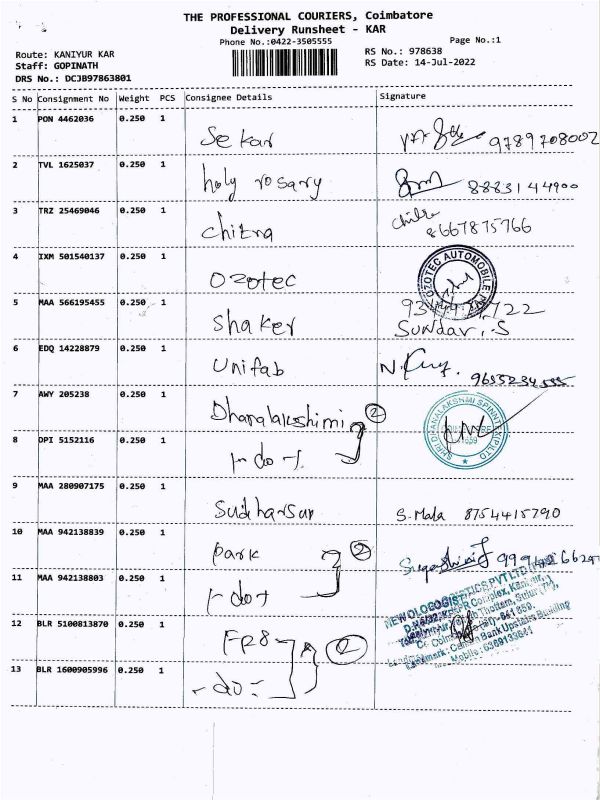 THE PROFESSIONAL COURIERS, Coimbatore
Delivery Runsheet - KAR
Phone No.:0422-3505555
Page No.:1
Route: KANIYUR KAR
Staff: GOPINATH
DRS No.: DCJB97863801
RS No.: 978638
RS Date: 14-Jul-2022
S No Consignment No Weight PCS Consignee Details Signature
1 PON 4462036 0.250 1 Sekar 9789708002
2 TVL 1625037 0.250 1 holy rosary 8883144900
3 TRZ 25469046 0.250 1 chitra chitra
8667875766
4 IXM 501540137 0.250 1 Ozotec OZOTEC AUTOMOBILE
5 MAA 566195455 0.250 1 Shaker
Sundar.S
6 EDQ 14228879 0.250 1 Unifab
7 AWY 205238 0.250 1 Dhanalakshimi 2
SHRI DHANALAKSHMI
8 OPI 5152116 0.250 1 -do-
9 MAA 280907175 0.250 1 Sudharsan S.Mala 8754415790
10 MAA 942138839 0.250 1 park 2
11 MAA 942138803 0.250 1 -do-
NEWOLOGOGISTICS PVT LTD
12 BLR 5100813870 0.250 1 FP8 2
Landmark: Canara Bank Upstairs Building
13 BLR 1600905996 0.250 1 -do-